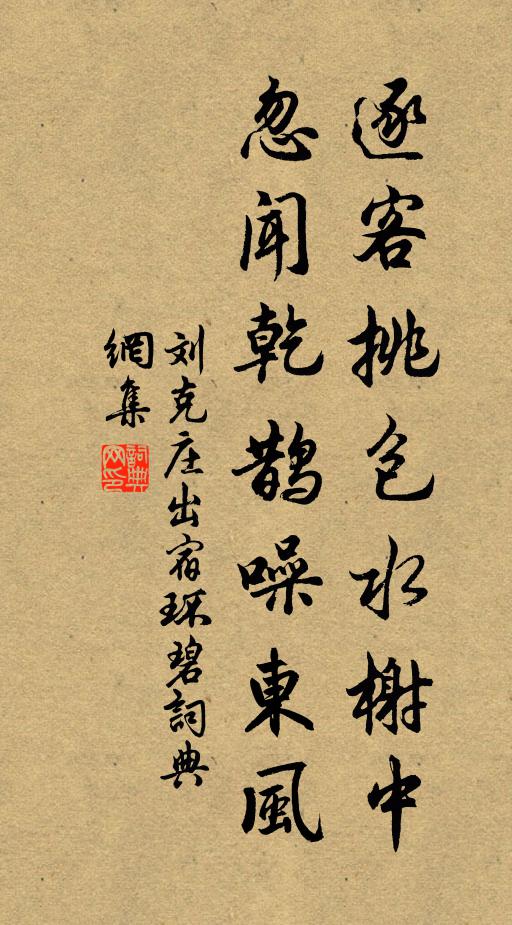 逐客挑包水榭中
忽闻乾鹊噪東風
刘克庄出宿环碧詞典
網集
詞典网印